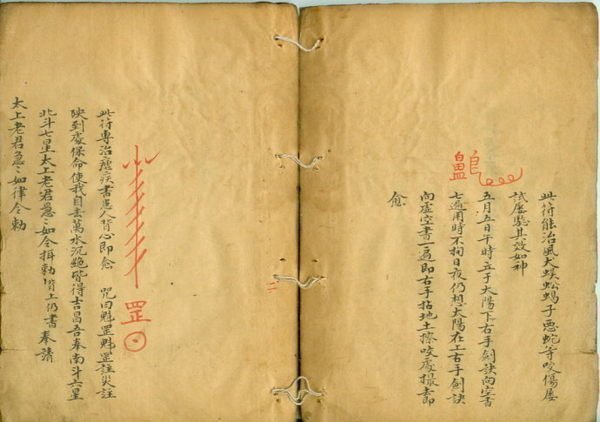 此符能治風犬蜈蚣蝎子惡蛇等咬傷屡
試屡驗其效如神
五月五日午時立于太陽下右手劍訣向空書
七遍用時不拘日夜仍想太陽在上右手劍訣
向虛空書一遍即右手拈地土擦咬處撮去即
愈
此符專治瘧疾書患人背心即愈 咒曰魁罡魁罡註災註
殃到處保命使我自去萬水沉絕皆得吉昌吾奉南斗六星
北斗七星太上老君急〻如令揖勅背上仍書奉請
太上老君急〻如律令勅
罡